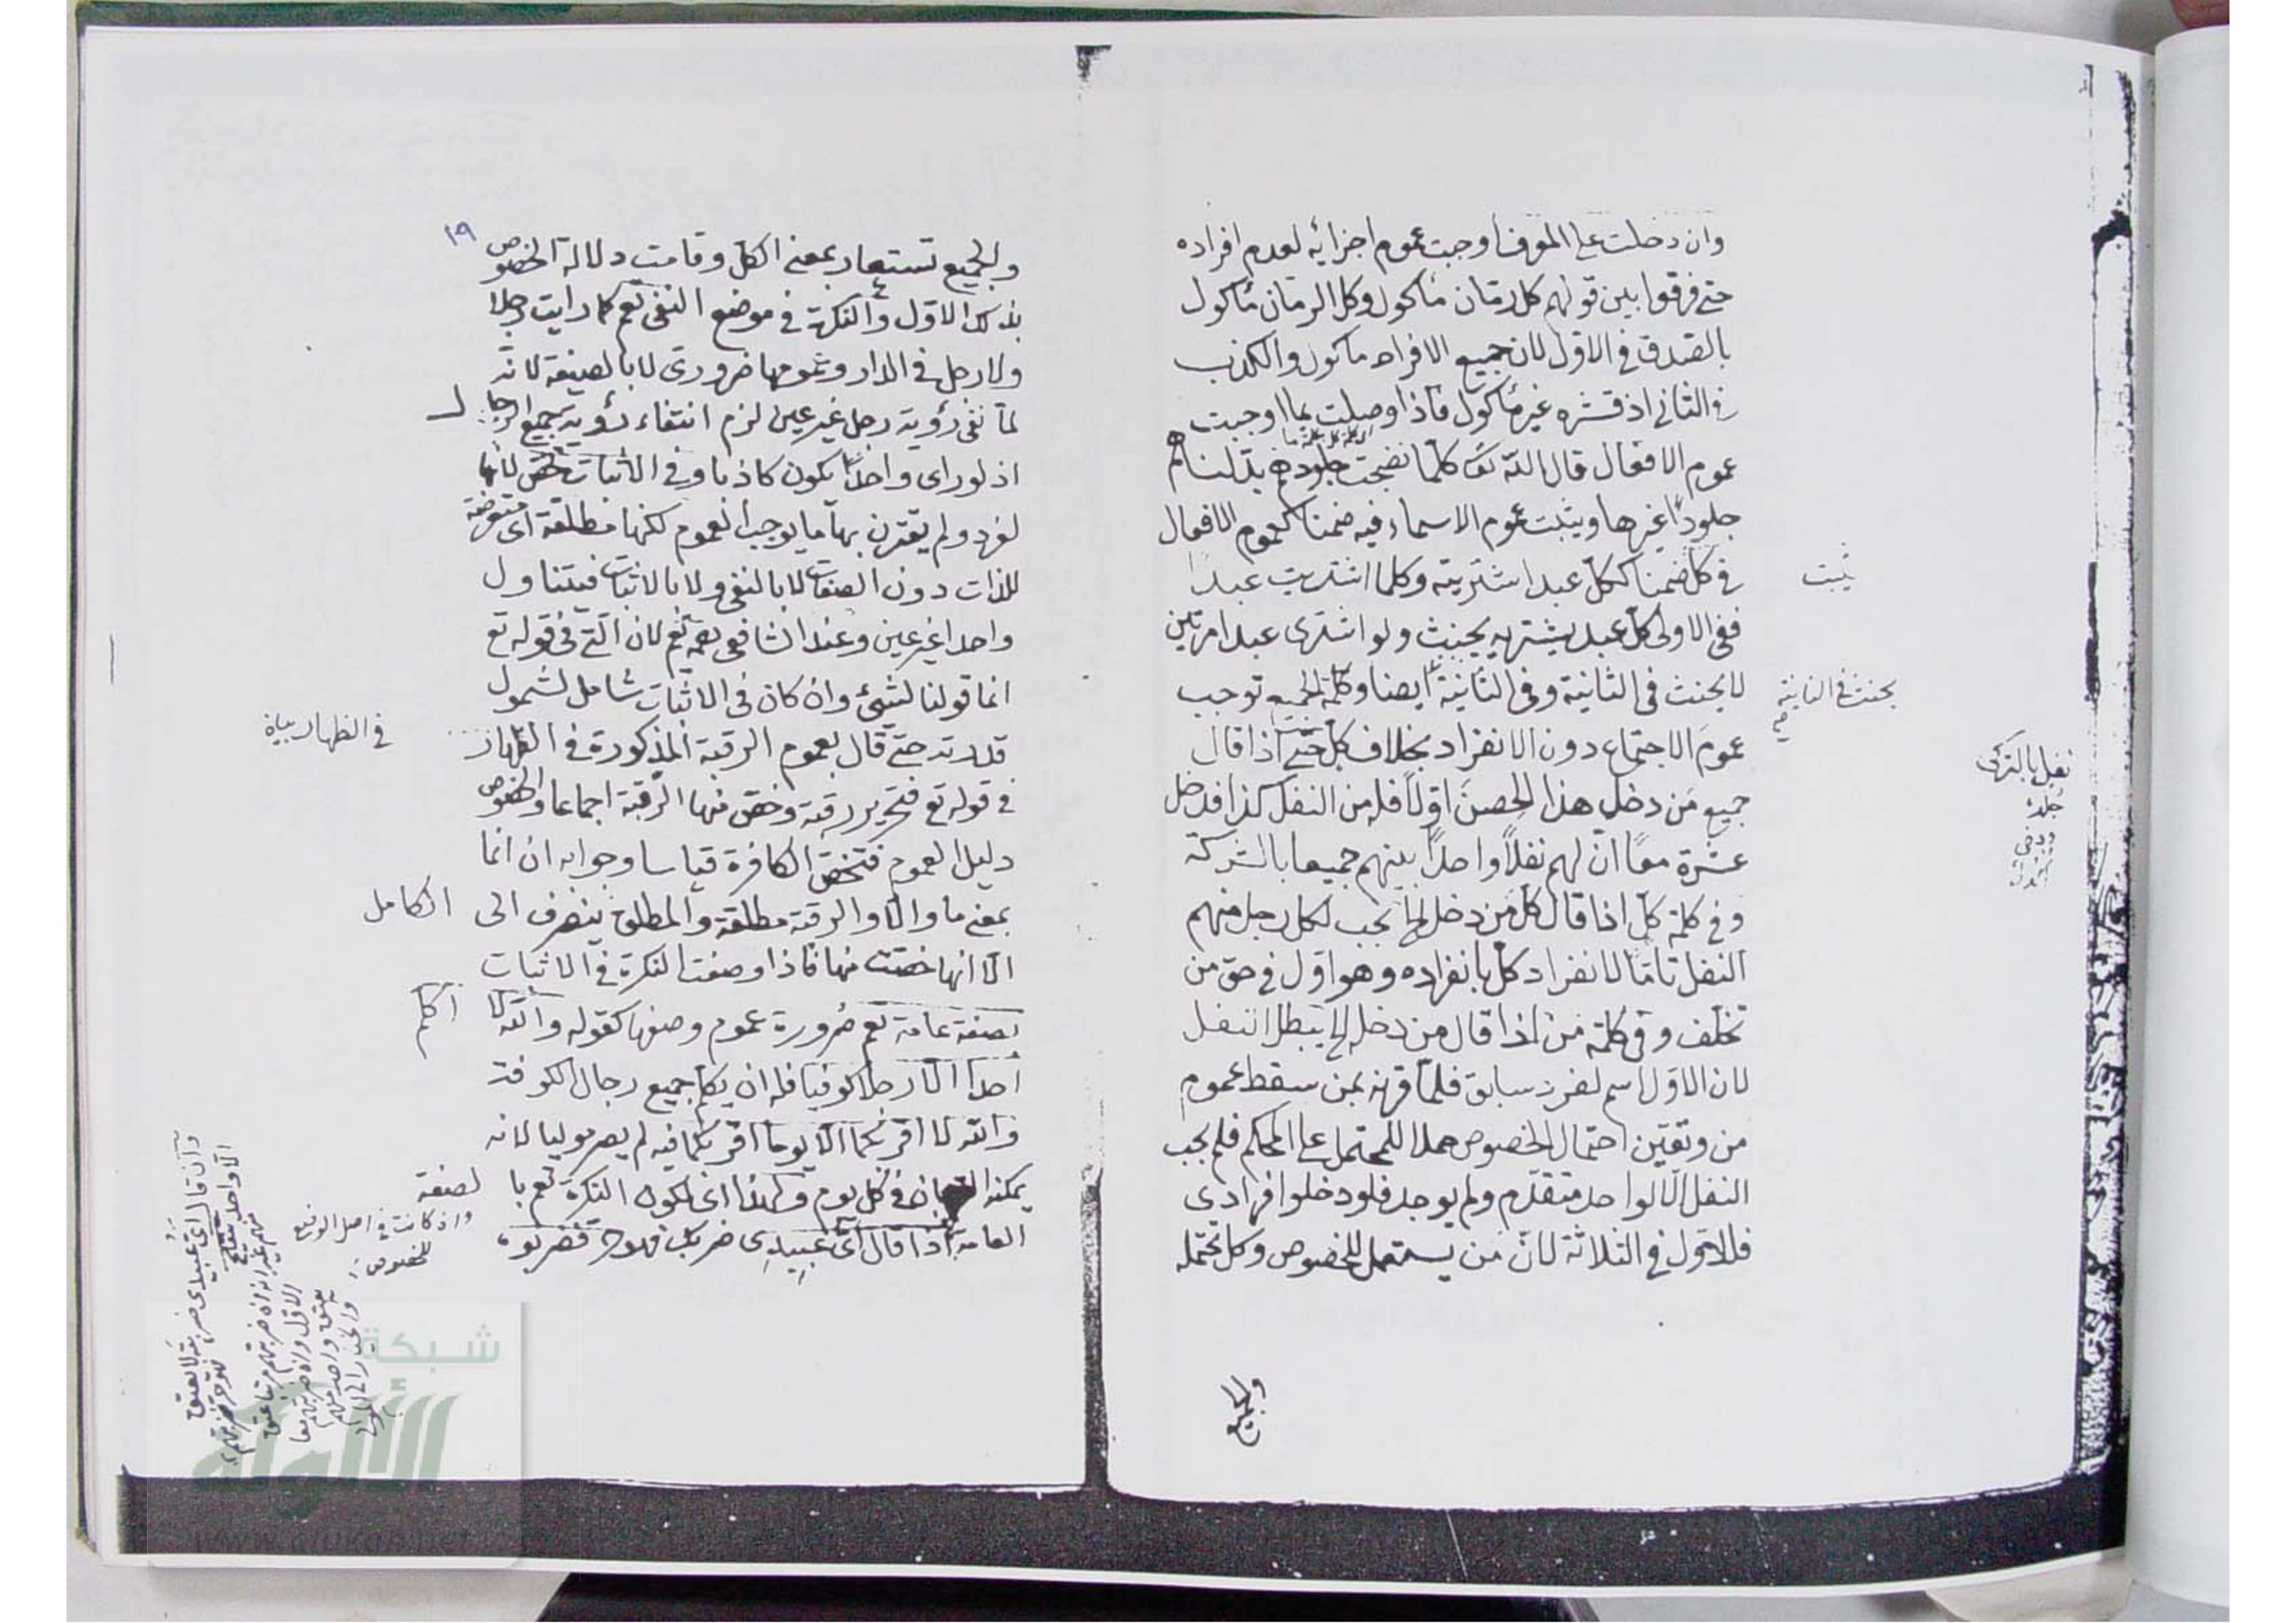 وان دخلت على المعرف اوجبت عموم اجزائه لعدم افراده
حتى فرقوا بين قولهم كل رمّان مأكول وكل الرمّان مأكول
بالصدق في الاوّل لان جميع الافراد مأكول والكذب
في الثاني اذ قشره غير مأكول فاذا وصلت بما اوجبت
عموم الافعال قال الله تع كلّما نضجت جلودهم بدّلناهم
جلودًا غيرها ويثبت عموم الاسماء فيه ضمنا كعموم الافعال
في كل ضمنا ككلّ عبد اشتريته وكلما اشتريت عبدا
ثبت
ففي الاولى كلّ عبد يشتريه يحنث ولو اشترى عبدا مرتين
لا يحنث في الثانية وفي الثانية ايضا وكلمة الجميع توجب
يحنث في الثانية
عموم الاجتماع دون الانفراد بخلاف كل حتى اذا قال
جميع مَن دخل هذا الحصن اوّلًا فله من النفل كذا فدخل
عشرة معًا انّ لهم نفلًا واحدًا بينهم جميعا بالشركة
وفي كلمة كلّ اذا قال كل مَن دخل الخ يجب لكل رجل منهم
النفل تامّا لانفراد كلّ بانفراده وهو اوّل في حق من
تخلّف وفي كلمة مَن اذا قال من دخل الخ يبطل النفل
لان الاوّل اسم لفرد سابق فلمّا قرنه بمن سقط عموم
من وتعيّن احتمال الخصوص حملا للمحتمل على المحكم فلم يجب
النفل الّا لواحد متقدّم ولم يوجد فلو دخلوا فرادى
فللاوّل في الثلاثة لانّ مَن يستعمل للخصوص وكل تحتمله
والجميع
١٩
والجميع تستعار بمعنى الكلّ وقامت دلالة الخصوص
بذلك الاول والنكرة في موضع النفي تعم كما رايت رجلا
ولا رجل في الدار وعمومها ضروريّ لا بالصيغة لانّه
لمّا نفى رؤية رجل غير عين لزم انتفاء رؤية جميع الرجال
اذ لو راى واحدًا يكون كاذبا وفي الاثبات تخص لانها
لفرد ولم يقترن بها ما يوجب العموم لكنها مطلقة اى متعرضة
للذات دون الصفات لا بالنفي ولا بالاثبات فيتناول
واحدا غير عين وعند الشافعى رحمه تعم لان التي في قوله تع
انما قولنا لشيئ وان كان في الاثبات شامل لشمول
قدرته حتى قال بعموم الرقبة المذكورة في الظهار
في الظهار بيانه
في قوله تع فتحرير رقبة وخص منها الزمنة اجماعا والخصوص
دليل العموم فتخص الكافرة قياسا وجوابه ان انما
بمعنى ما والّا والرقبة مطلقة والمطلق ينصرف الى الكامل
الّا انها خصّت منها فاذا وصفت النكرة في الاثبات
بصفة عامة تعم ضرورة عموم وصفها كقوله والله لا اكلم
احدا الّا رجلا كوفيا فله ان يكلم جميع رجال الكوفة
والله لا اقربكما الّا يوما اقربكما فيه لم يصر موليا لانه
يمكنه القربان في كل يوم ولهذا اى لكون النكرة تعم بالصفة
العامة اذا قال اىّ عبيدى ضربك فهو حرّ فضربوه
واذ كانت في اصل الوضع
للخصوص
وان قال اىّ عبيدى ضربته لا يعتق
الّا واحد